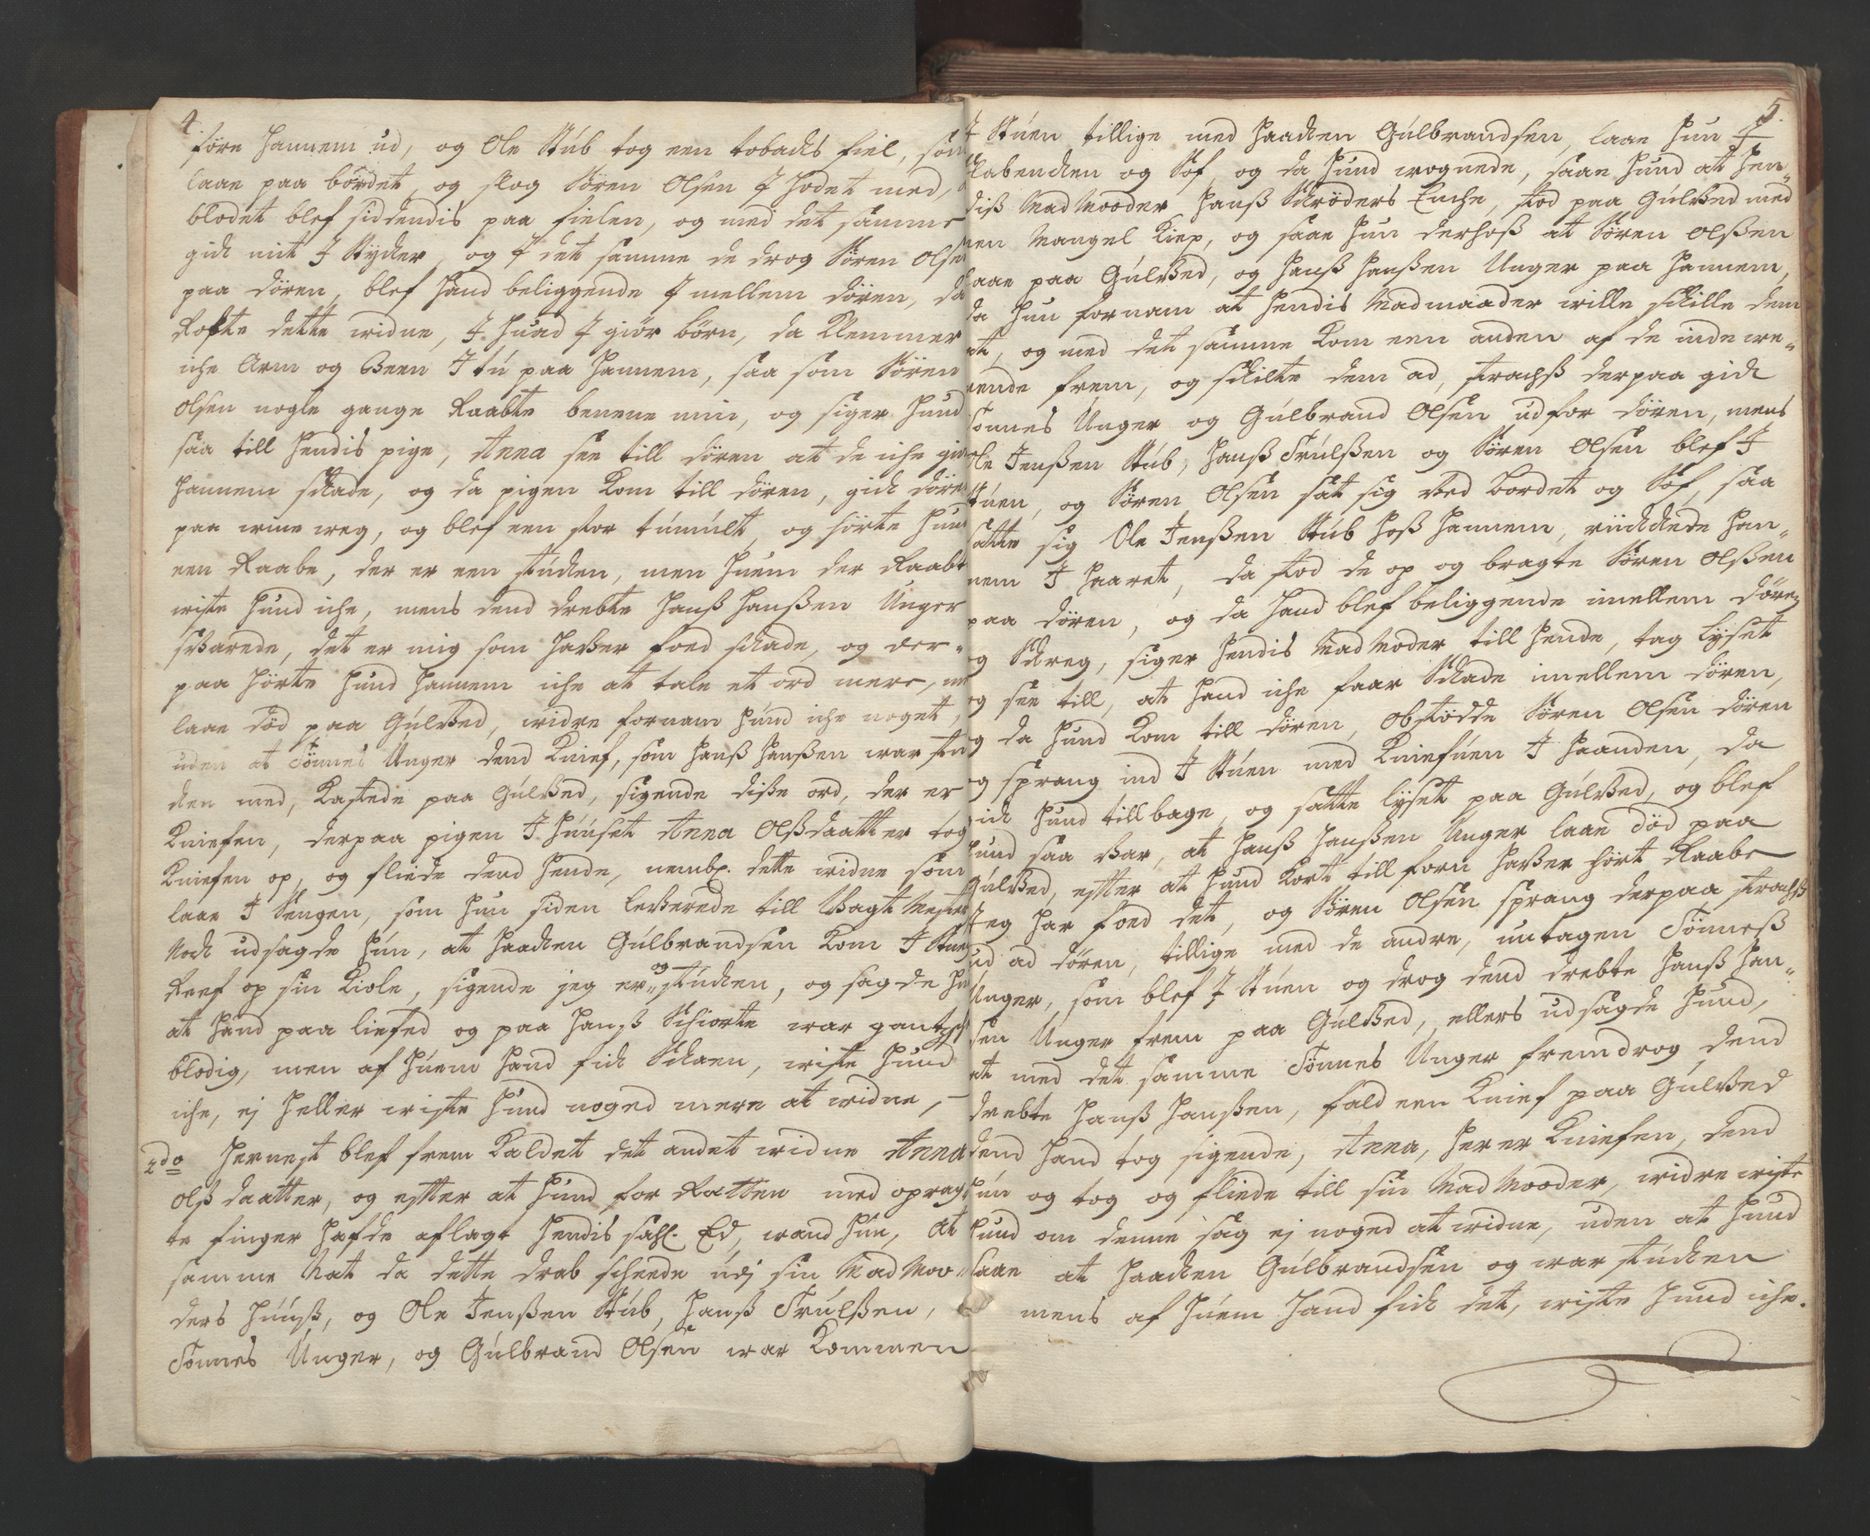 4.
føre hannem ud, og Ole Stub tog een tobachs fiel, som
laae paa bordet, og slog Søren Olsen I hodet med,
blodet blef siddendis paa fielen, og med det samme
gich mit I Stycker, og I det samme de drog Søren Olsen
paa døren, blef hand beliggende I mellem døren, da
Rofte dette widne, I. huad I giør børn, da Klemmer
iche Arm og Been I tu paa hannem, saa som Søren
Olsen nogle gange Raabte benene min, og siger hund
saa till hendis pige, Anna see till døren at de iche giør
hannem skade, og da pigen kom till døren, gich døren
paa wiene weg, og blef een stor tumult, og hörte hun
een Raabe, der er een stuchen, men huem der Raabte
wiste hund iche, mens dend drebte Hanß Hanßen Unger
swarede, det er mig som hafver foed skade, og der-
paa hörte hund hannem iche at tale et ord mere, men
laae död paa Gulfved, widre fornam hund iche noget,
uden at Tønnes Unger dend Knief, som Hanß Hanßen war stu-
chen med, kastede paa Gulfved, sigende diße ord, der er
Kniefen, derpaa pigen I huuset Anna Olßdaatter tog
Kniefen op, og fliede dend hende, nembl. dette widne som
laae I Sengen, som hun siden lefverede till Vagt Mester
Noch udsagde hun, at Haachen Gulbrandsen kom I Stuen
Reef op sin Kiole, sigende jeg er og stuchen, og sagde hun
at hand paa liefved og paa hanß Schiorte war gantz
blodig, men af huem hand fich Skaen, wiste hund
iche, ej heller wiste hund noged mere at widne,
2do Hernest blef frem kaldet det andet widne Anna
Olß daatter, og efter at hund for Retten med oprag-
te finger hafde aflagt hendis sahl. Ed, wand hun, At
samme Nat da dette drab scheede udj sin Mad Moo-
ders huuß, og Ole Jenßen Stub, Hanß Trulßen,
Tønnes Unger, og Gulbrand Olsen war kommen
5.
I Stuen tillige med Haachen Gulbrandsen, laae hun I
Slabenchen og Sof, og da hund wognede, saae hund at hen-
diß Mad Mooder Hanß Skröders Enche, stod paa Gulfved med
een Mangel Kiep, og saae hun derhoß at Søren Olßen
laae paa Gulfved, og Hanß Hanßen Unger paa hannem,
da hun fornam at hendis Madmaader wille skille dem
at, og med det samme kom een anden af de inde we-
rende frem, og skilte dem ad, strachß derpaa gich
Tønnes Unger og Gulbrand Olsen ud for døren, mens
Ole Jenßen Stub, Hanß Trulßen og Søren Olsen blef I
Stuen, og Søren Olsen sat sig ved bordet og Sof, saa
satte sig Ole Jenßen Stub hoß hannem, ruchede han-
nem I Haaret, da stod de op og bragte Søren Olßen
paa døren, og da hand blef beliggende imellem døren
og Skreg, siger hendis Mad Moder till hende, tag lyset
og see till, at hand iche faar Skade imellem døren,
og da hund kom till døren, obstødde Søren Olsen døren
og sprang ind I Stuen med Kniefuen I haanden, da
gich hund tillbage, og satte lyset paa Gulfved, og blef
hund saa var, at Hanß Hanßen Unger laae död paa
Gulfved, efter at hund kort till forn hafver hört Raabe
Jeg har foed det, og Søren Olsen sprang derpaa strachß
ud ad døren, tillige med de andre, untagen Tönneß
Unger, som blef I Stuen og drog dend drebte Hanß Han-
sen Unger frem paa Gulfved, ellers udsagde hund,
at med det samme Tønnes Unger fremdrog dend
drebte Hanß Hanßen, fald een Knief paa Gulfved
dend hand tog sigende, Anna, her er Kniefen, dend
hun og tog og fliede till sin Mad Mooder, widre wiste
hund om denne sag ej noged at widne, uden at hund
saae at Haachen Gulbrandsen og war stuchen
mens af huem hand fich det, wiste hund iche.